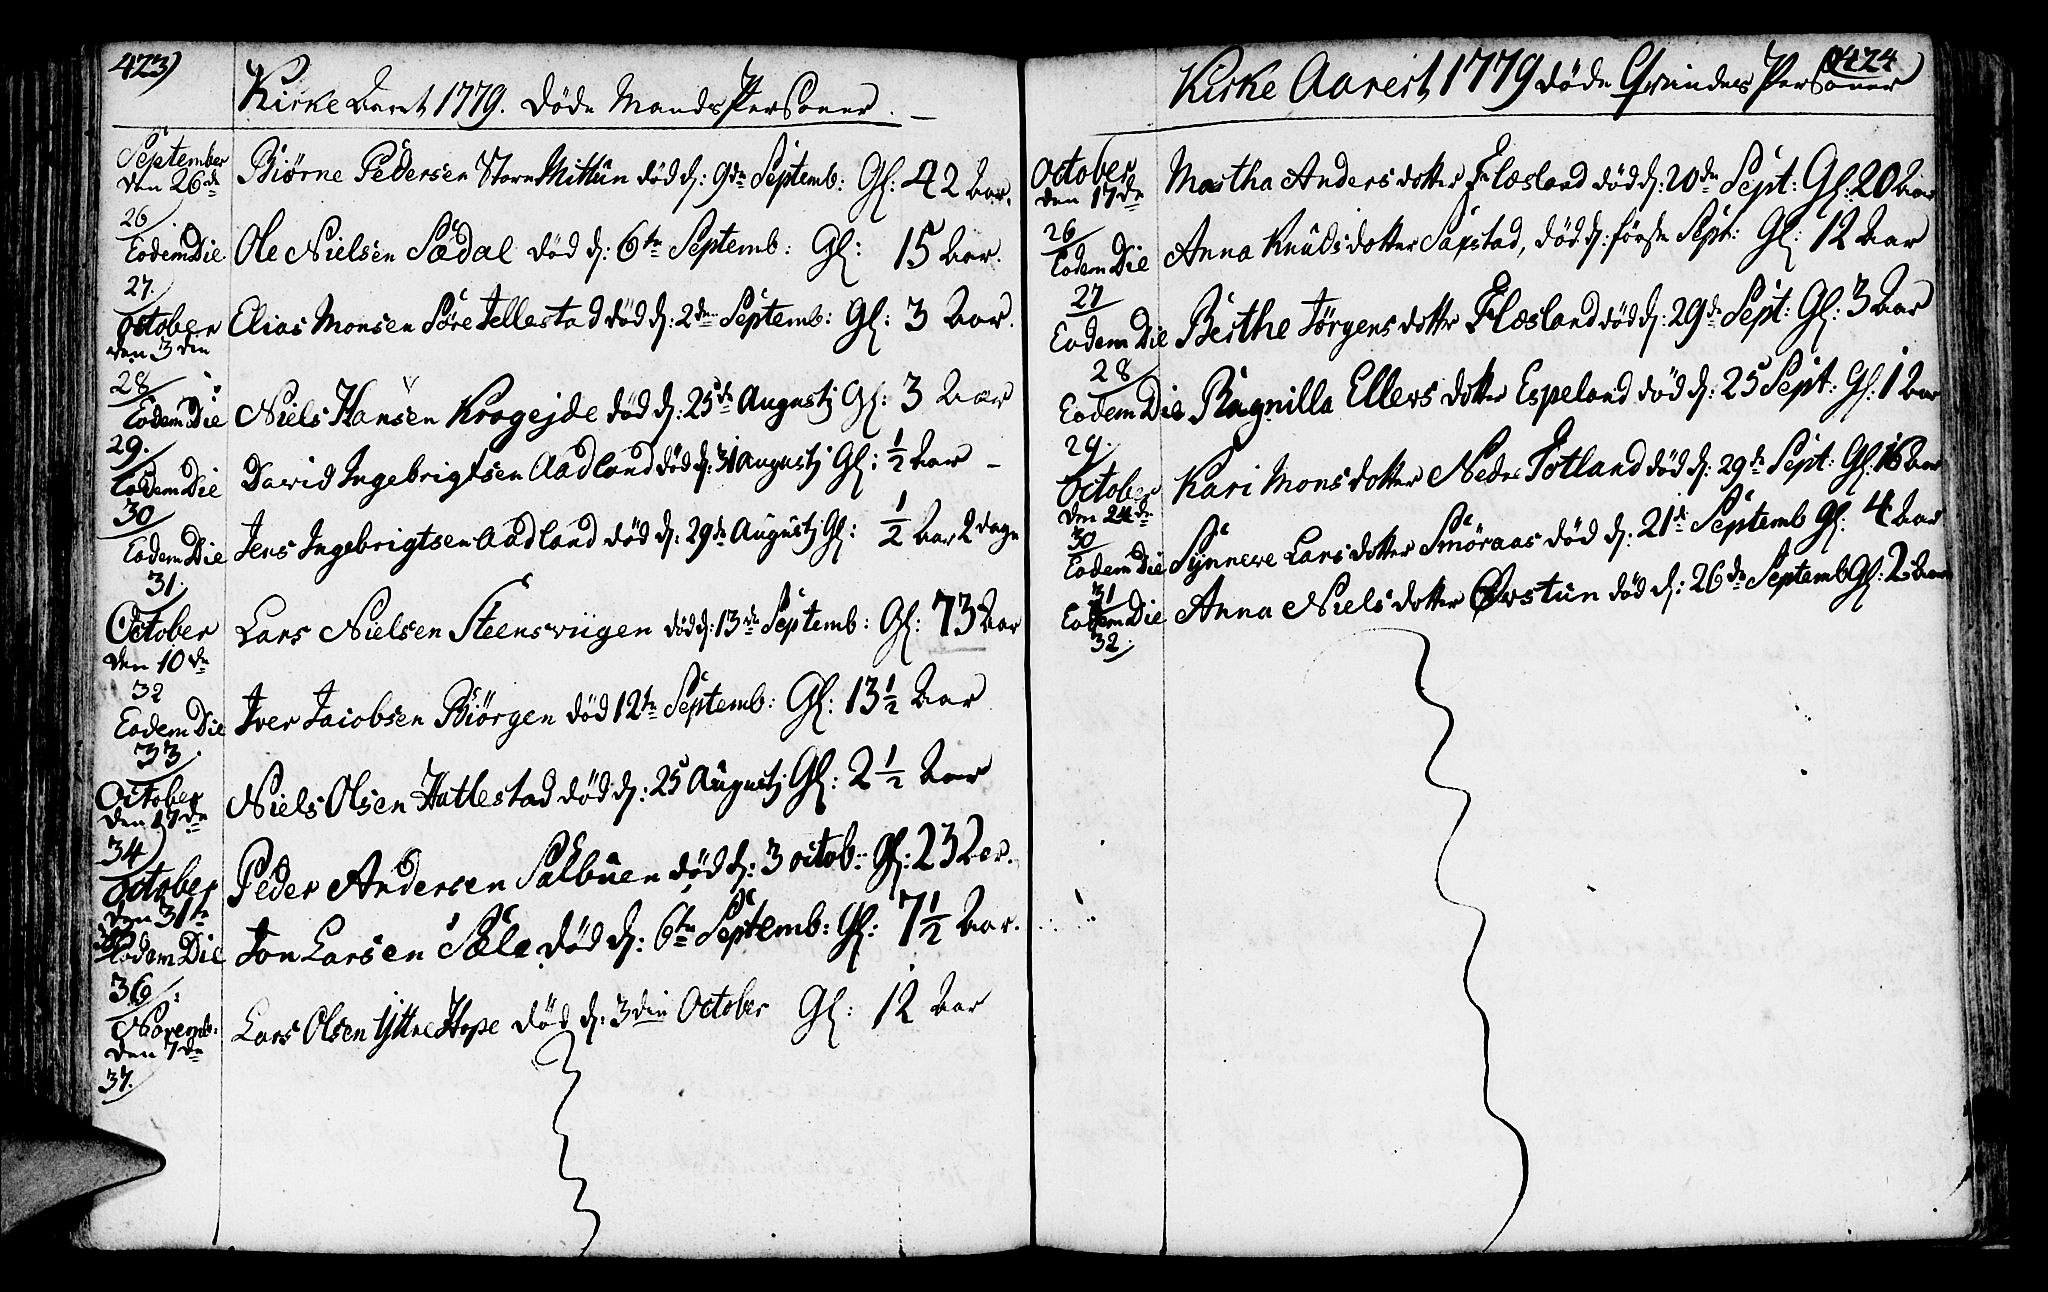 423)
Kirke Aaret 1779. Døde Mands Personer.
September
den 26de
26
Biørne Pedersen Store Mittun død d: 9de Septemb: Gl: 42 Aar.
Eodem Die
27.
Ole Nielsen Sædal død d: 6te Septemb: Gl: 15 Aar.
October
den 3den
28
Elias Monsen Søre Jellestad død d: 2den Septemb: Gl: 3 Aar.
Eodem Die
29.
Niels Hansen Krogejde død d: 25de Augustj Gl: 3 Aar
Eodem Die
30
David Ingebrigtsen Aadland død d: 31 Augustj Gl: ½ Aar
Eodem Die
31.
Jens Ingebrigtsen Aadland død d: 29de Augustj Gl: ½ Aar 2 dage
October
den 10de
32
Lars Nielsen Steensviigen død d: 13de Septemb: Gl: 73 Aar
Eodem Die
33.
Iver Jaiobsen Biørgen død 12te Septemb: Gl: 13½ Aar
October
den 17de
34
Niels Olsen Hatlestad død d: 25 Augustj Gl: 2½ Aar
October
den 31te
Peder Andersen Sælbuen død d: 3 octob: Gl: 23 Aar.
Eodem Die
36
Jon Larsen Sæle død d: 6te Septemb: Gl: 7½ Aar.
Novemb:
den 7de
37.
Lars Olsen Yttre Hope død d: 3din October Gl: 12 Aar
424
Kirke Aaret 1779 døde Qvindes Personer
October
den 17de
26
Martha Anders dotter Flæsland død d: 20de Sept: Gl: 20 Aar
Eodem Die
27
Anna Knuds dotter Saxstad, død d: første Sept: Gl: 12 Aar
Eodem Die
28
Berthe Jørgens dotter Flæsland død d: 29de Sept: Gl: 3 Aar
Eodem Die
29.
Ragnilla Ellers dotter Espeland død d: 25 Sept: Gl: 1 Aar
October
den 24de
30
Kari Mons dotter Nedre Totland død d: 29de Sept: Gl: 16 Aar
Eodem Die
31
Synneve Lars dotter Smøraas død d: 21de Septemb Gl: 4 Aar
Eodem Die
32.
Anna Niels dotter Øvstun død d: 26de Septemb Gl: 2 Aar